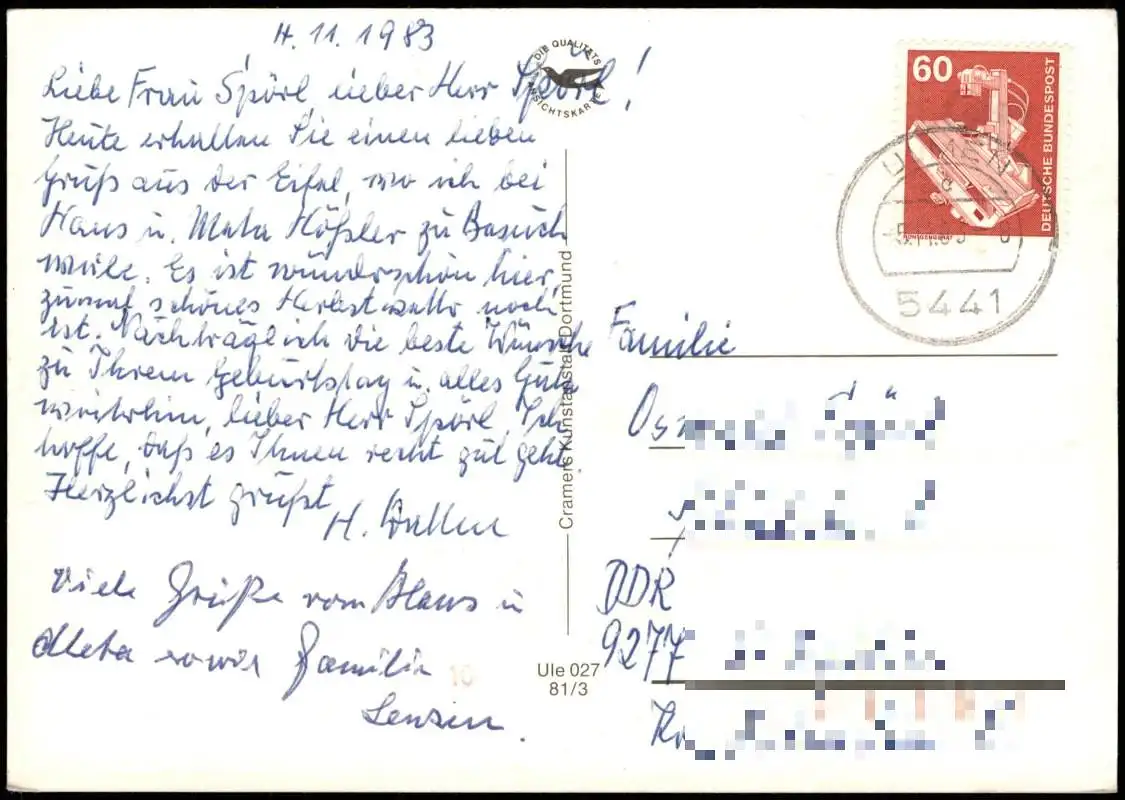 4.11.1983
Liebe Frau Spörl, lieber Herr Spörl!
Heute erhalten Sie einen lieben
Gruß aus der Eifel, wo ich bei
Hans u. Meta Häßler zu Besuch
weile. Es ist wunderschön hier,
zumal schönes Herbstwetter noch
ist. Nachträglich die beste Wünsche
zu Ihrem Geburtstag u. alles Gute
weiterhin, lieber Herr Spörl. Ich
hoffe, daß es Ihnen recht gut geht.
Herzlichst grüßt
H.
Viele Grüße vom Hans u
Meta sowie Familie
DIE QUALITÄTS
ANSICHTSKARTE
Cramers Kunstanstalt Dortmund
Ule 027
81/3
60
DEUTSCHE BUNDESPOST
RÖNTGENGERÄT
ULMEN
-5.11.83
5441
Familie
DDR
9277